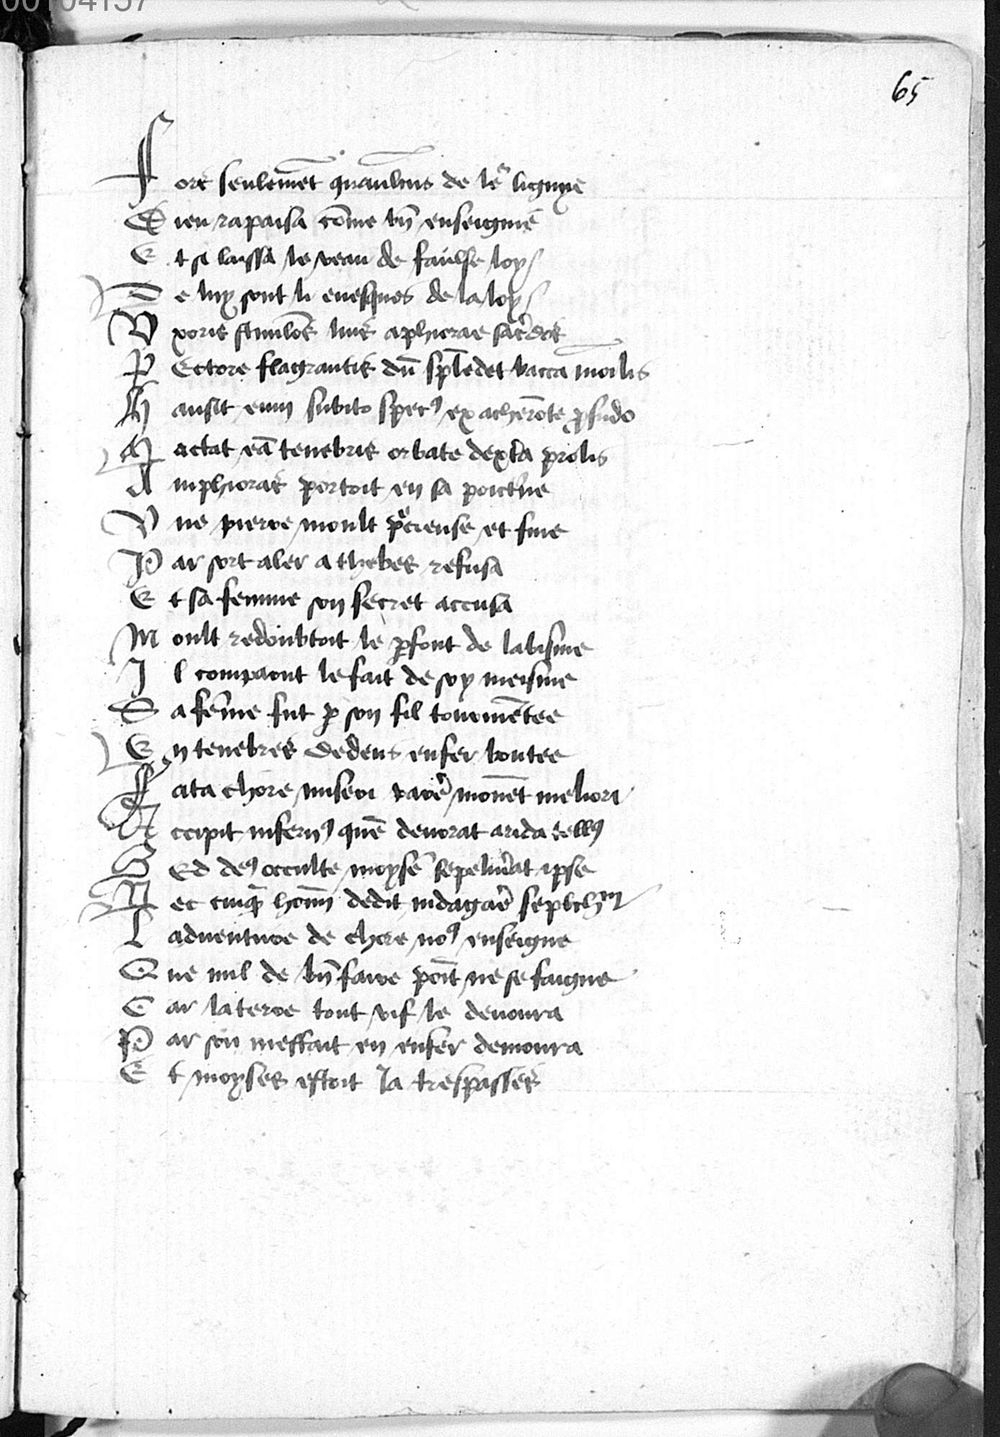 00104157
65
Fors seulemẽt quãulcuns de lr̃ lignye
Dieu rapaisa cõme bñ enseignie
Et si laissa le veau de faulse loy
De luy sont li euesques de la loy
Uxoris stimulos luit aphiorae sacrdos
Pectore flagrantis dũ splẽdet bacca monilis
Hausit eum subito specꝯ ex acherõte ꝓfũdo
Mactat eã tenebris orbate dextra prolis
Amphioras portoit en sa poictrine
Une pierre moult pͥcieuse et fine
Par sort aler a thebes refusa
Et sa femme son secret accusa
Moult redoubtoit le ꝓfont de labisme
Il comparut le fait de soy meisme
Sa fẽme fut ꝑ son fil tourmẽtee
En tenebres dedens enfer boutee
Fata chore miseri rarẽ monẽt meliora
Accipit infernꝯ quẽ deuorat arida tellꝯ
Sed deꝯ occulte moysẽ sepeliuĩat ipse
Nec cuiq̃ homĩ dedit indagarẽ seplchrũ
Laduenture de chore noꝯ enseigne
Que nul de bñ faire poĩt ne se faigne
Car la terre tout vif le deuoura
Par son meffait en enfer demoura
Et moyses estoit ja trespasses